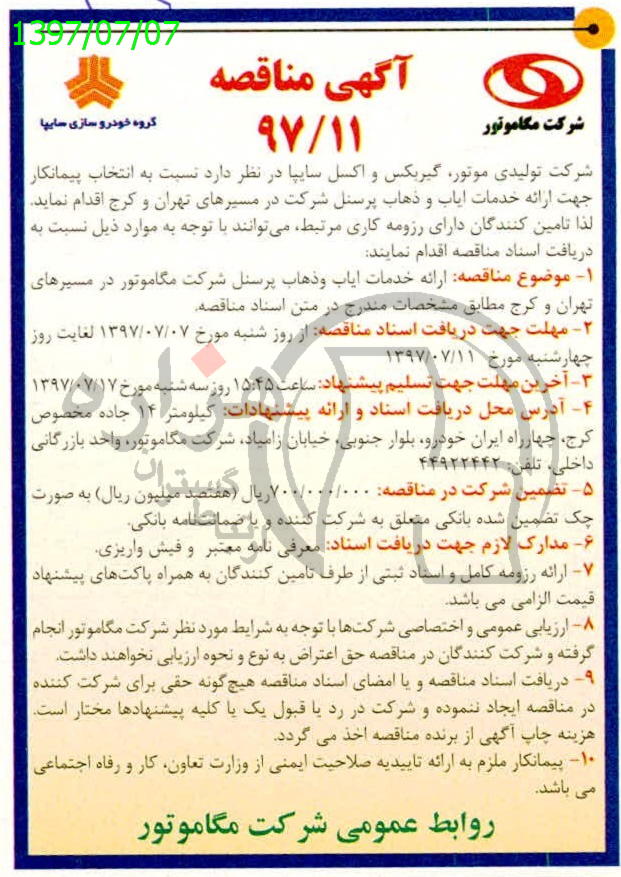 1397/07/07
آگهی مناقصه
۹۷/۱۱
شرکت مگاموتور
گروه خودروسازی سایپا
شرکت تولیدی موتور، گیربکس و اکسل سایپا در نظر دارد نسبت به انتخاب پیمانکار
جهت ارائه خدمات ایاب و ذهاب پرسنل شرکت در مسیرهای تهران و کرج اقدام نماید.
لذا تامین کنندگان دارای رزومه کاری مرتبط، می‌توانند با توجه به موارد ذیل نسبت به
دریافت اسناد مناقصه اقدام نمایند:
۱- موضوع مناقصه: ارائه خدمات ایاب وذهاب پرسنل شرکت مگاموتور در مسیرهای
تهران و کرج مطابق مشخصات مندرج در متن اسناد مناقصه.
۲- مهلت جهت دریافت اسناد مناقصه: از روز شنبه مورخ ۱۳۹۷/۰۷/۰۷ لغایت روز
چهارشنبه مورخ ۱۳۹۷/۰۷/۱۱
۳- آخرین مهلت جهت تسلیم پیشنهاد: ساعت ۱۵:۴۵ روز سه شنبه مورخ ۱۳۹۷/۰۷/۱۷
۴- آدرس محل دریافت اسناد و ارائه پیشنهادات: کیلومتر ۱۴ جاده مخصوص
کرج، چهارراه ایران خودرو، بلوار جنوبی، خیابان زامیاد، شرکت مگاموتور، واحد بازرگانی
داخلی، تلفن: ۴۴۹۲۲۴۴۲
۵- تضمین شرکت در مناقصه: ۷۰۰/۰۰۰/۰۰۰ریال (هفتصد میلیون ریال) به صورت
چک تضمین شده بانکی متعلق به شرکت کننده و یا ضمانتنامه بانکی.
۶- مدارک لازم جهت دریافت اسناد: معرفی نامه معتبر و فیش واریزی.
۷- ارائه رزومه کامل و اسناد ثبتی از طرف تامین کنندگان به همراه پاکت‌های پیشنهاد
قیمت الزامی می باشد.
۸- ارزیابی عمومی و اختصاصی شرکت‌ها با توجه به شرایط مورد نظر شرکت مگاموتور انجام
گرفته و شرکت کنندگان در مناقصه حق اعتراض به نوع و نحوه ارزیابی نخواهند داشت.
۹- دریافت اسناد مناقصه و یا امضای اسناد مناقصه هیچ‌گونه حقی برای شرکت کننده
در مناقصه ایجاد ننموده و شرکت در رد یا قبول یک یا کلیه پیشنهادها مختار است.
هزینه چاپ آگهی از برنده مناقصه اخذ می گردد.
۱۰- پیمانکار ملزم به ارائه تاییدیه صلاحیت ایمنی از وزارت تعاون، کار و رفاه اجتماعی
می باشد.
روابط عمومی شرکت مگاموتور
هزاره
گستران